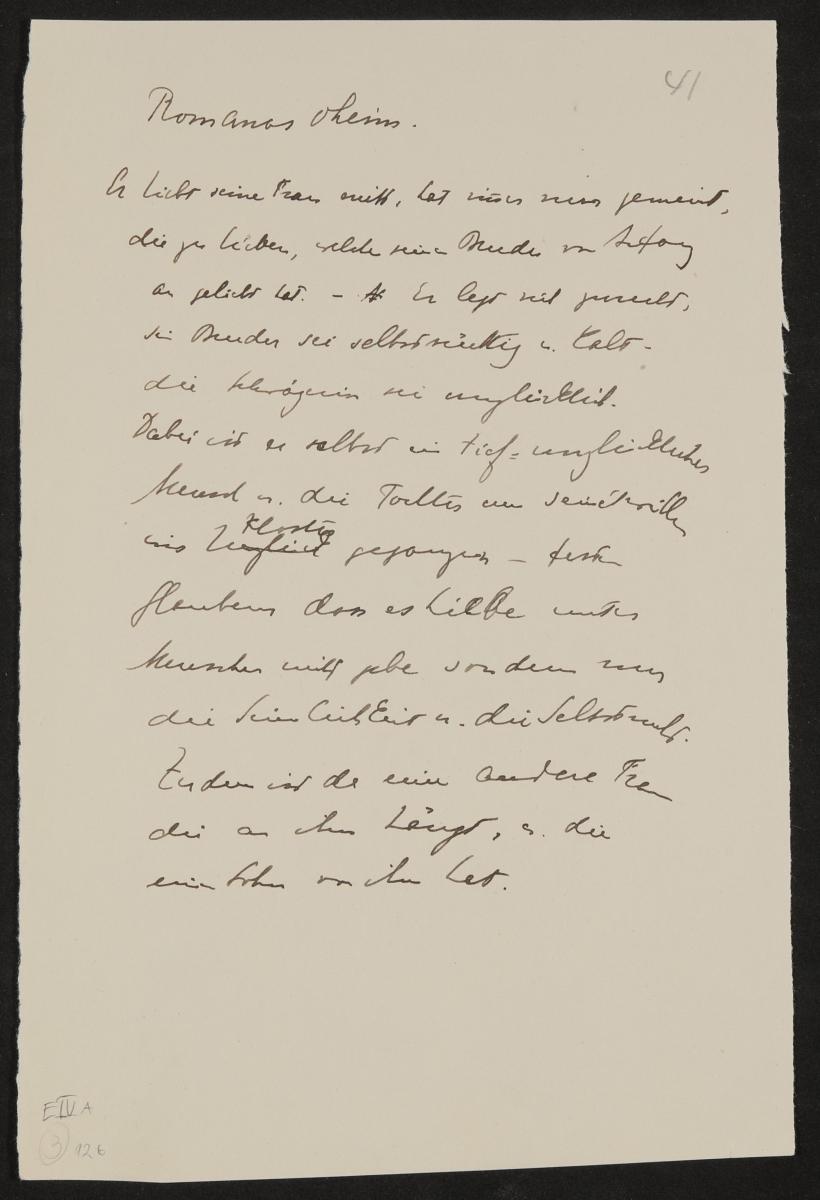 41
Romanos Oheim.
Er liebt seine Frau nicht, hat immer nur gemeint,
die zu lieben, welche sein Bruder von Anfang
an geliebt hat. – Er legt sich zurecht,
sein Bruder sei selbstsüchtig u. kalt –
die Schwägerin sei unglücklich.
Dabei ist er selbst ein tief-unglücklicher
Mensch u. die Tochter um seinetwillen
ins Kloster gegangen – festen
Glaubens dass es Liebe unter
Menschen nicht gebe sondern nur
die Sinnlichkeit u. die Selbstsucht.
Zudem ist da eine andere Frau
die an ihm hängt, u. die
einen Sohn von ihm hat.
E IV A
3 126